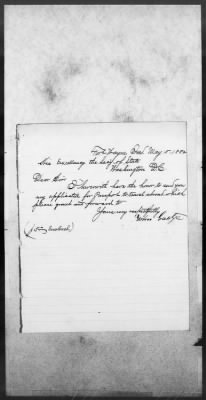 Fort Wayne, Ind. May 15, 188
His Excellency the Secy of State
Washington D.C.
Dear Sir:
I herewith have the honor to send you
my application for Passport to travel abroad which
please grant and forward to
Yours very respectfully
(1 Enclosed.)